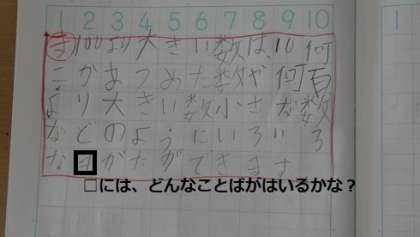 1 2 3 4 5 6 7 8 9 10
さ100より大きい数は、10何
こがあつめた数や何百
より大きい数小さな数
などのよういろいろ
な□がたができます
□には、どんなことばがはいるかな？
1